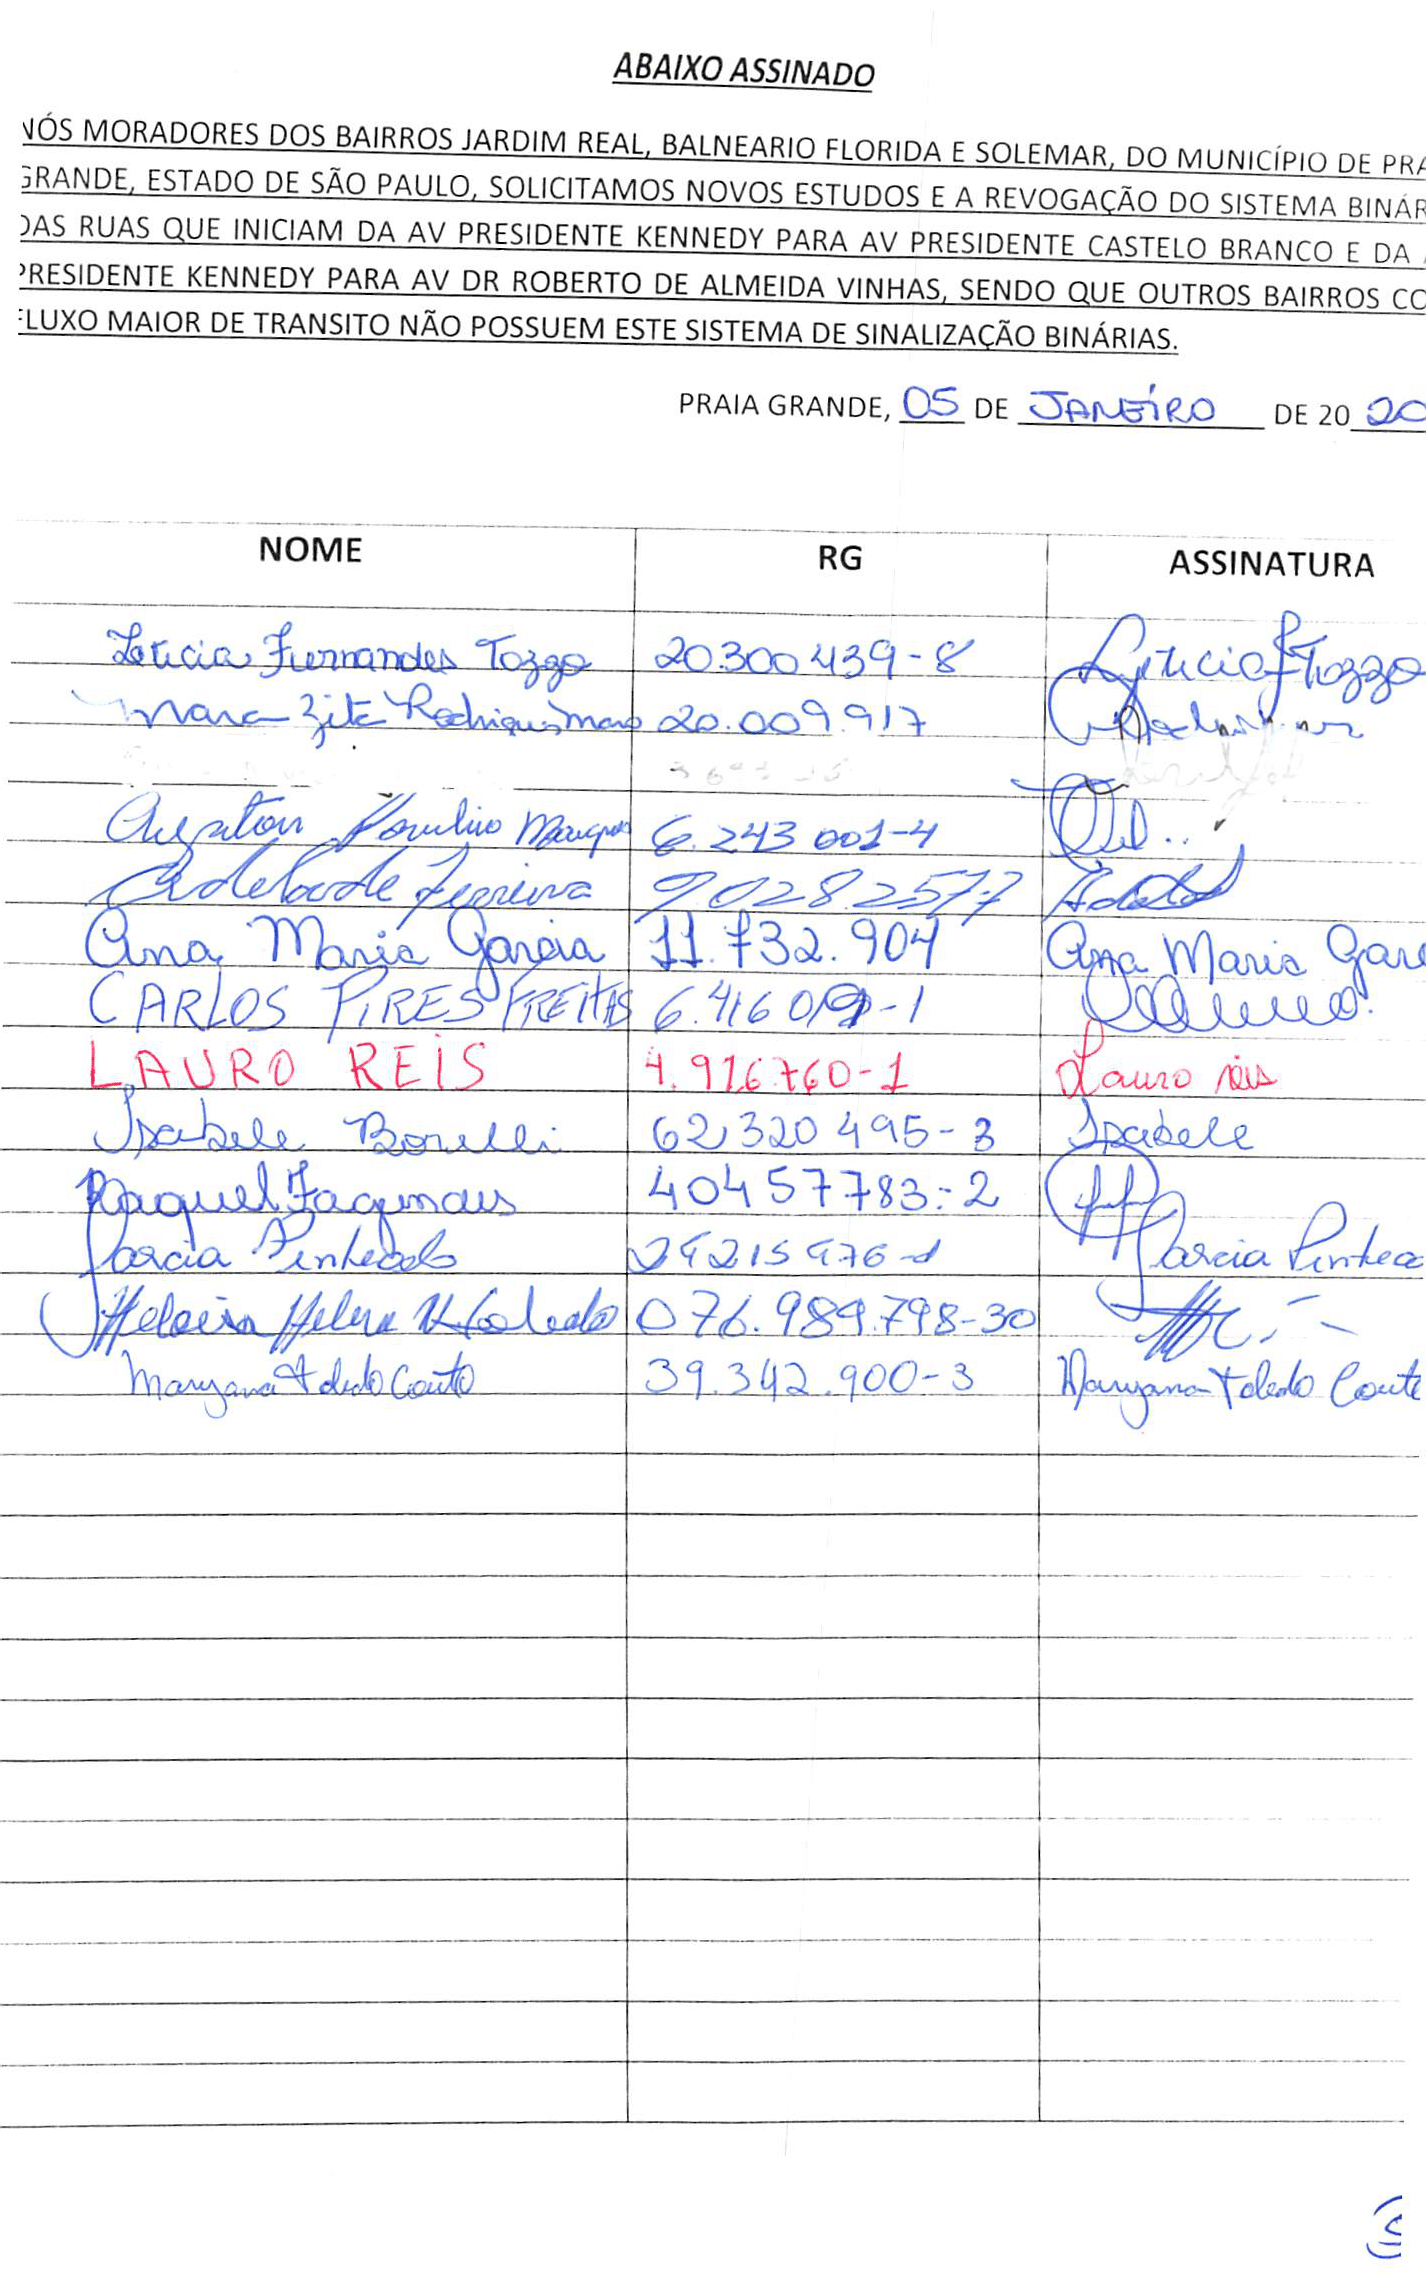 ABAIXO ASSINADO
NÓS MORADORES DOS BAIRROS JARDIM REAL, BALNEARIO FLORIDA E SOLEMAR, DO MUNICÍPIO DE PRA
GRANDE, ESTADO DE SÃO PAULO, SOLICITAMOS NOVOS ESTUDOS E A REVOGAÇÃO DO SISTEMA BINÁR
DAS RUAS QUE INICIAM DA AV PRESIDENTE KENNEDY PARA AV PRESIDENTE CASTELO BRANCO E DA
PRESIDENTE KENNEDY PARA AV DR ROBERTO DE ALMEIDA VINHAS, SENDO QUE OUTROS BAIRROS CO
FLUXO MAIOR DE TRANSITO NÃO POSSUEM ESTE SISTEMA DE SINALIZAÇÃO BINÁRIAS.
PRAIA GRANDE, 05 DE JANEIRO DE 20 20
NOME RG ASSINATURA
Leticia Fernandes Tozzo 20.300439-8 Leticia F Tozzo
Mara Zita Rodrigues 20.009.917
Ayrton Marques 6.243 001-4
Adelaide Ferreira 9.028.257-7
Ana Maria Garcia 11.732.904 Ana Maria Garc
CARLOS PIRES FREITAS
LAURO REIS 4.916.760-1 Lauro reis
Isabele Borelli 62320495-3 Isabele
Raquel Fagundes 40457783-2
Marcia 24215476-1 Marcia
Heloisa Helena Toledo 076.989.798-30
Maryana Toledo Couto 39.342.900-3 Maryana Toledo Couto